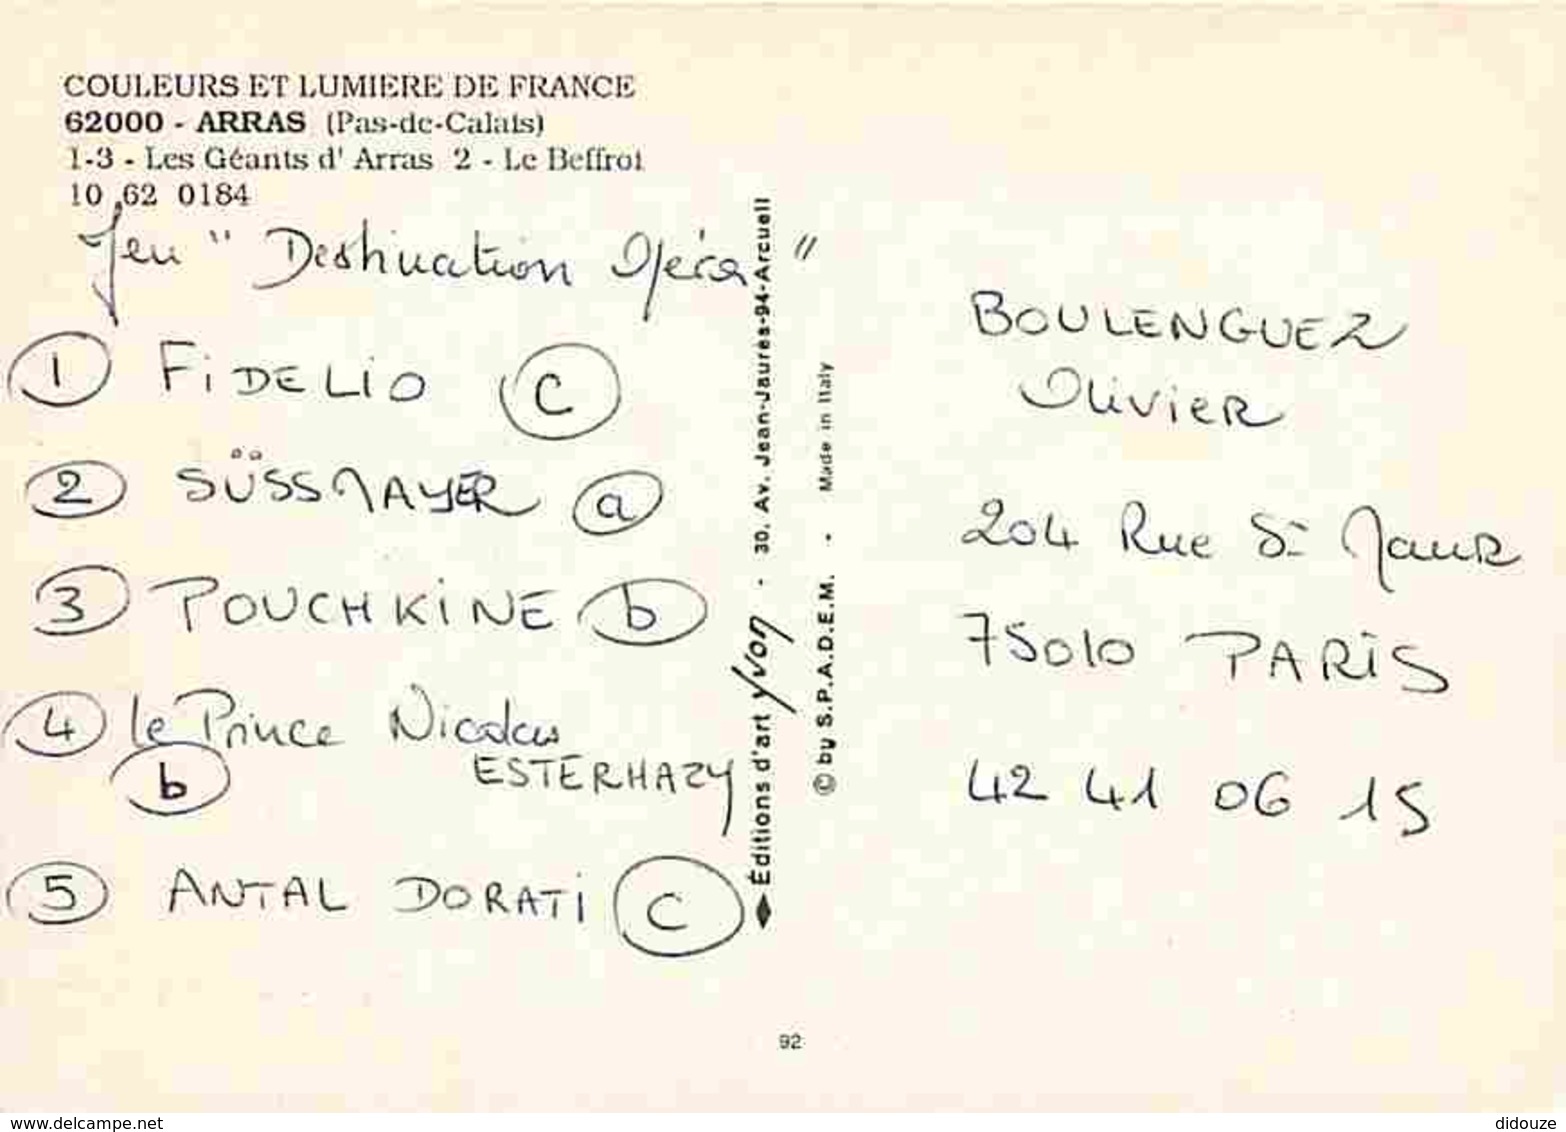 COULEURS ET LUMIERE DE FRANCE
62000 - ARRAS (Pas-de-Calais)
1-3 - Les Géants d' Arras 2 - Le Beffroi
10 62 0184
Jeu " Destination Opéra "
1 FIDELIO C
2 SÜSSMAYER a
3 POUCHKINE b
4 le Prince Nicolas
ESTERHAZY
b
5 ANTAL DORATI C
Éditions d'art Yvon - 30. Av. Jean-Jaurès-94-Arcueil
© by S.P.A.D.E.M. - Made in Italy
BOULENGUEZ
Olivier
204 Rue St Maur
75010 PARIS
42 41 06 15
92
www.delcampe.net
didouze